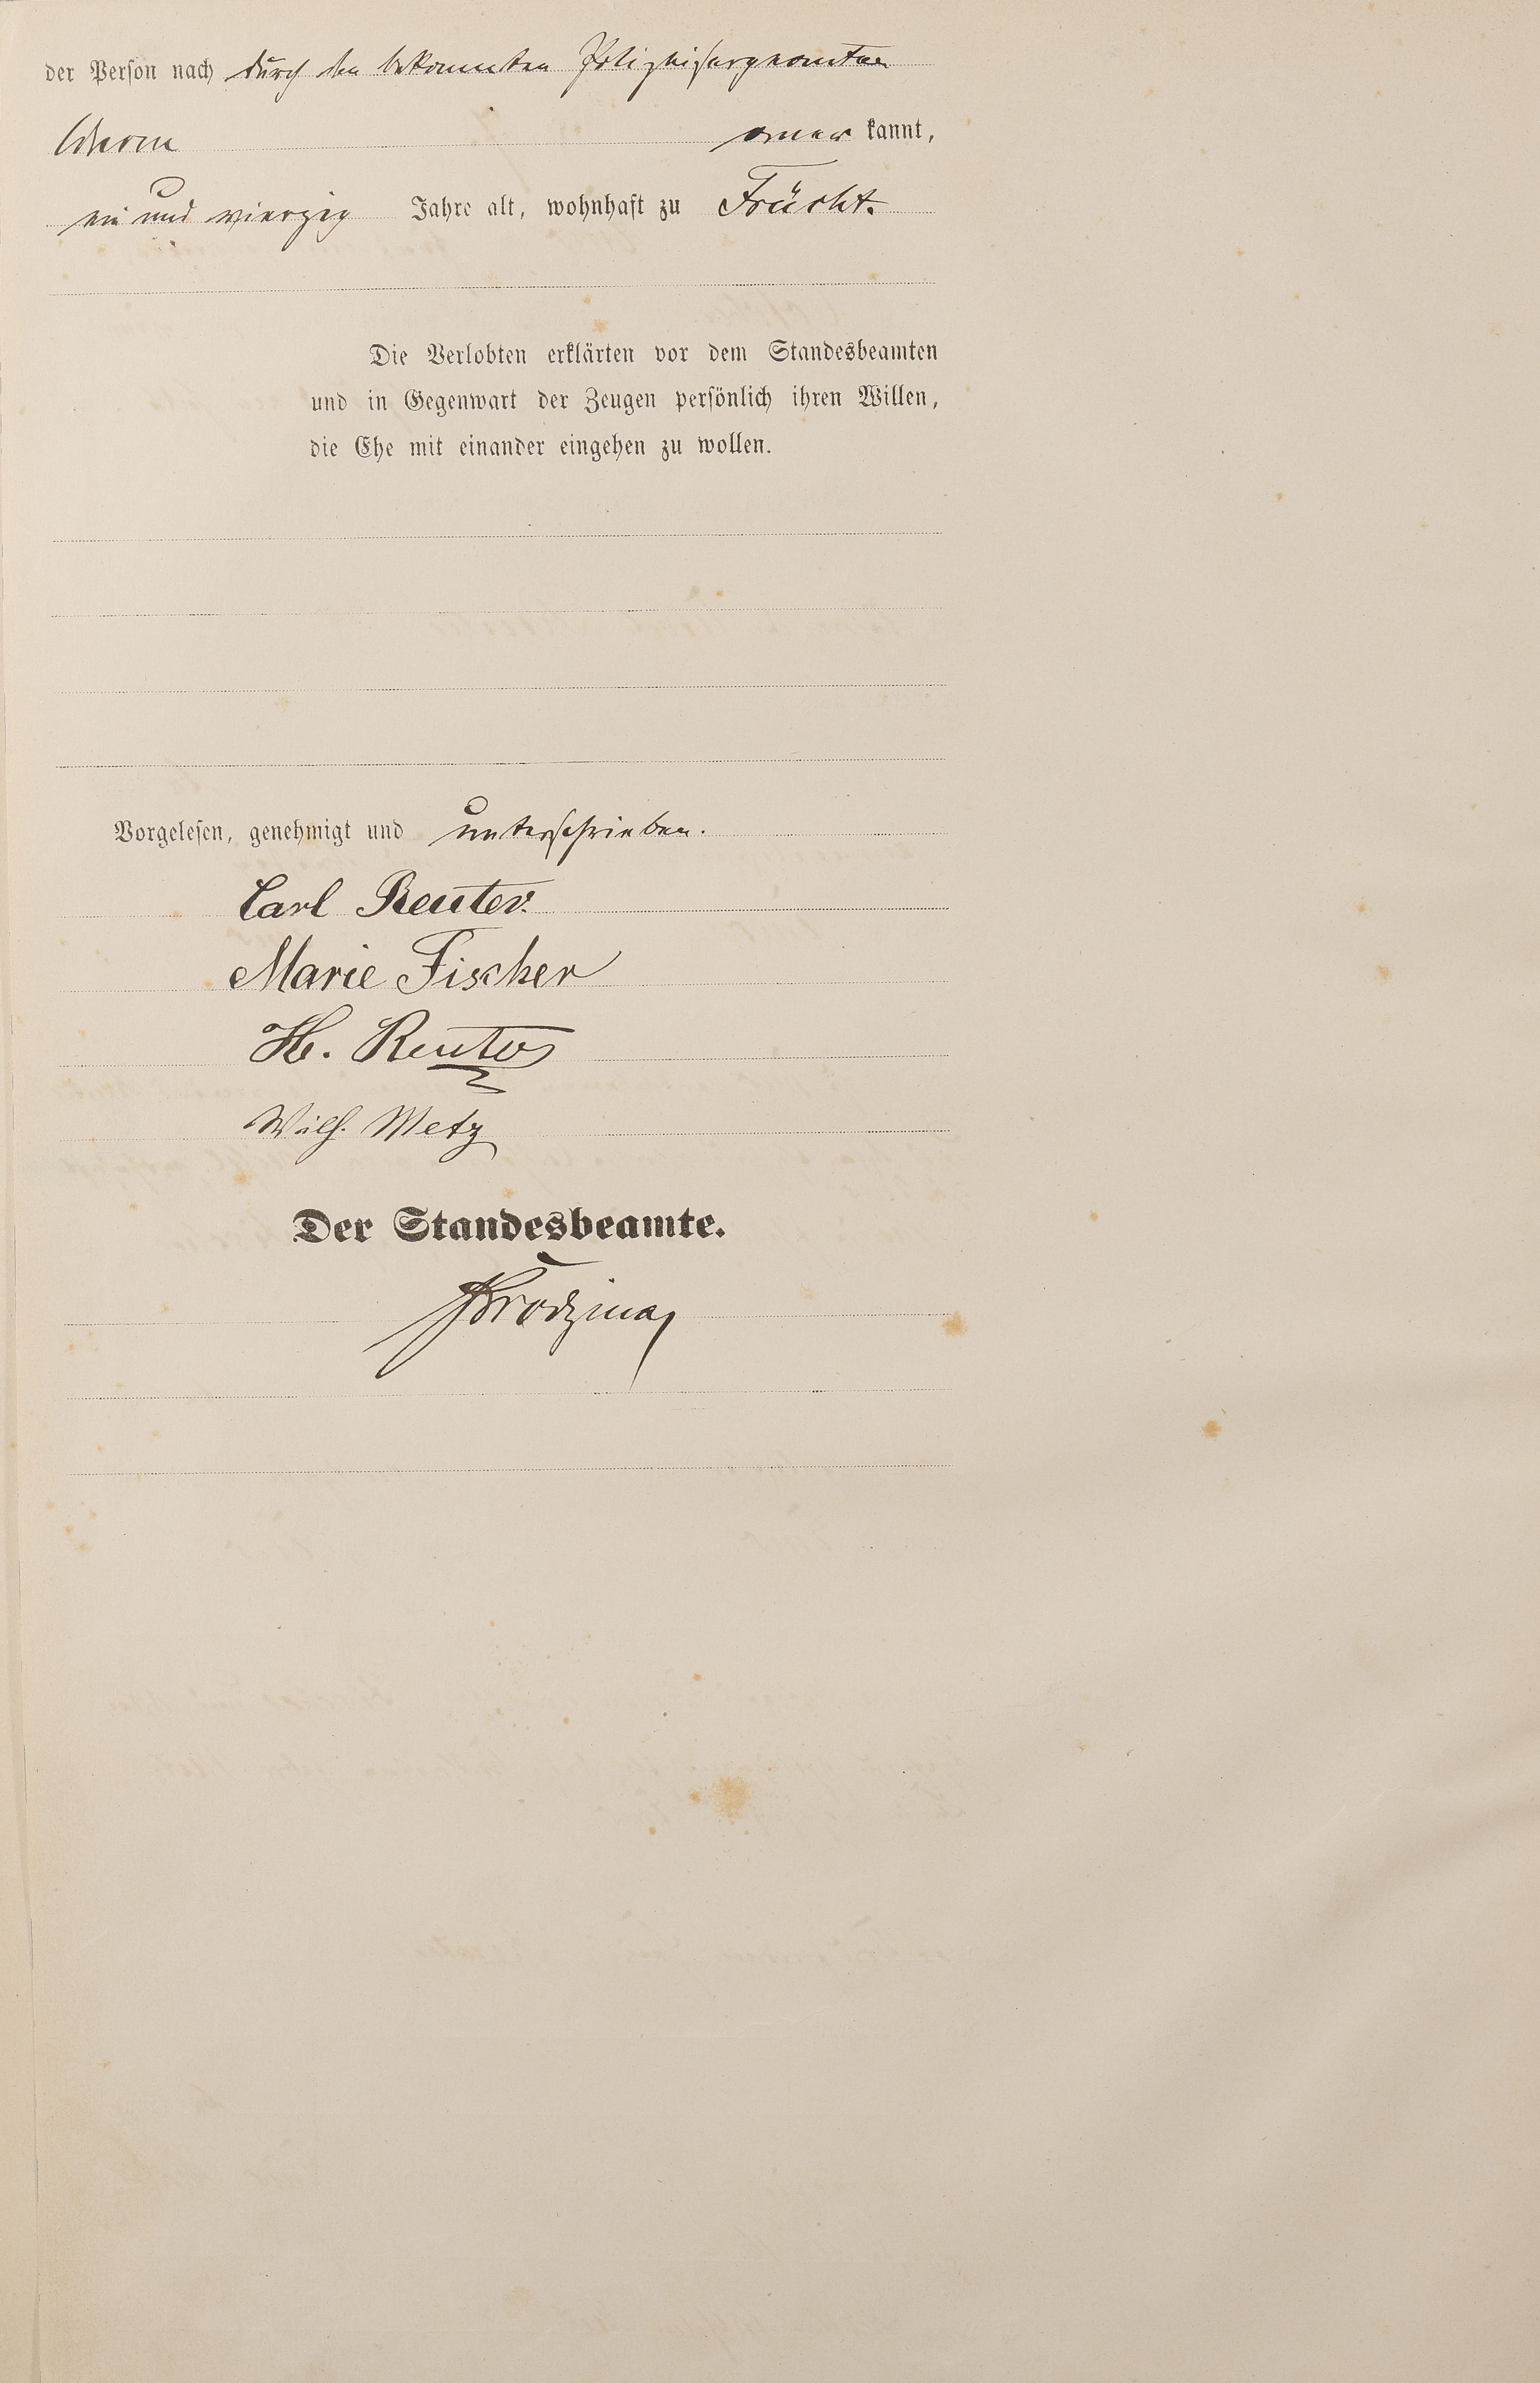 der Person nach durch den bekannten Polizeisergeanten
Thorn aner kannt,
ein und vierzig Jahre alt, wohnhaft zu Frücht.
Die Verlobten erklärten vor dem Standesbeamten
und in Gegenwart der Zeugen persönlich ihren Willen,
die Ehe mit einander eingehen zu wollen.
Vorgelesen, genehmigt und unterschrieben.
Carl Reuter.
Marie Fischer
H. Reuter
Wilh. Metz
Der Standesbeamte.